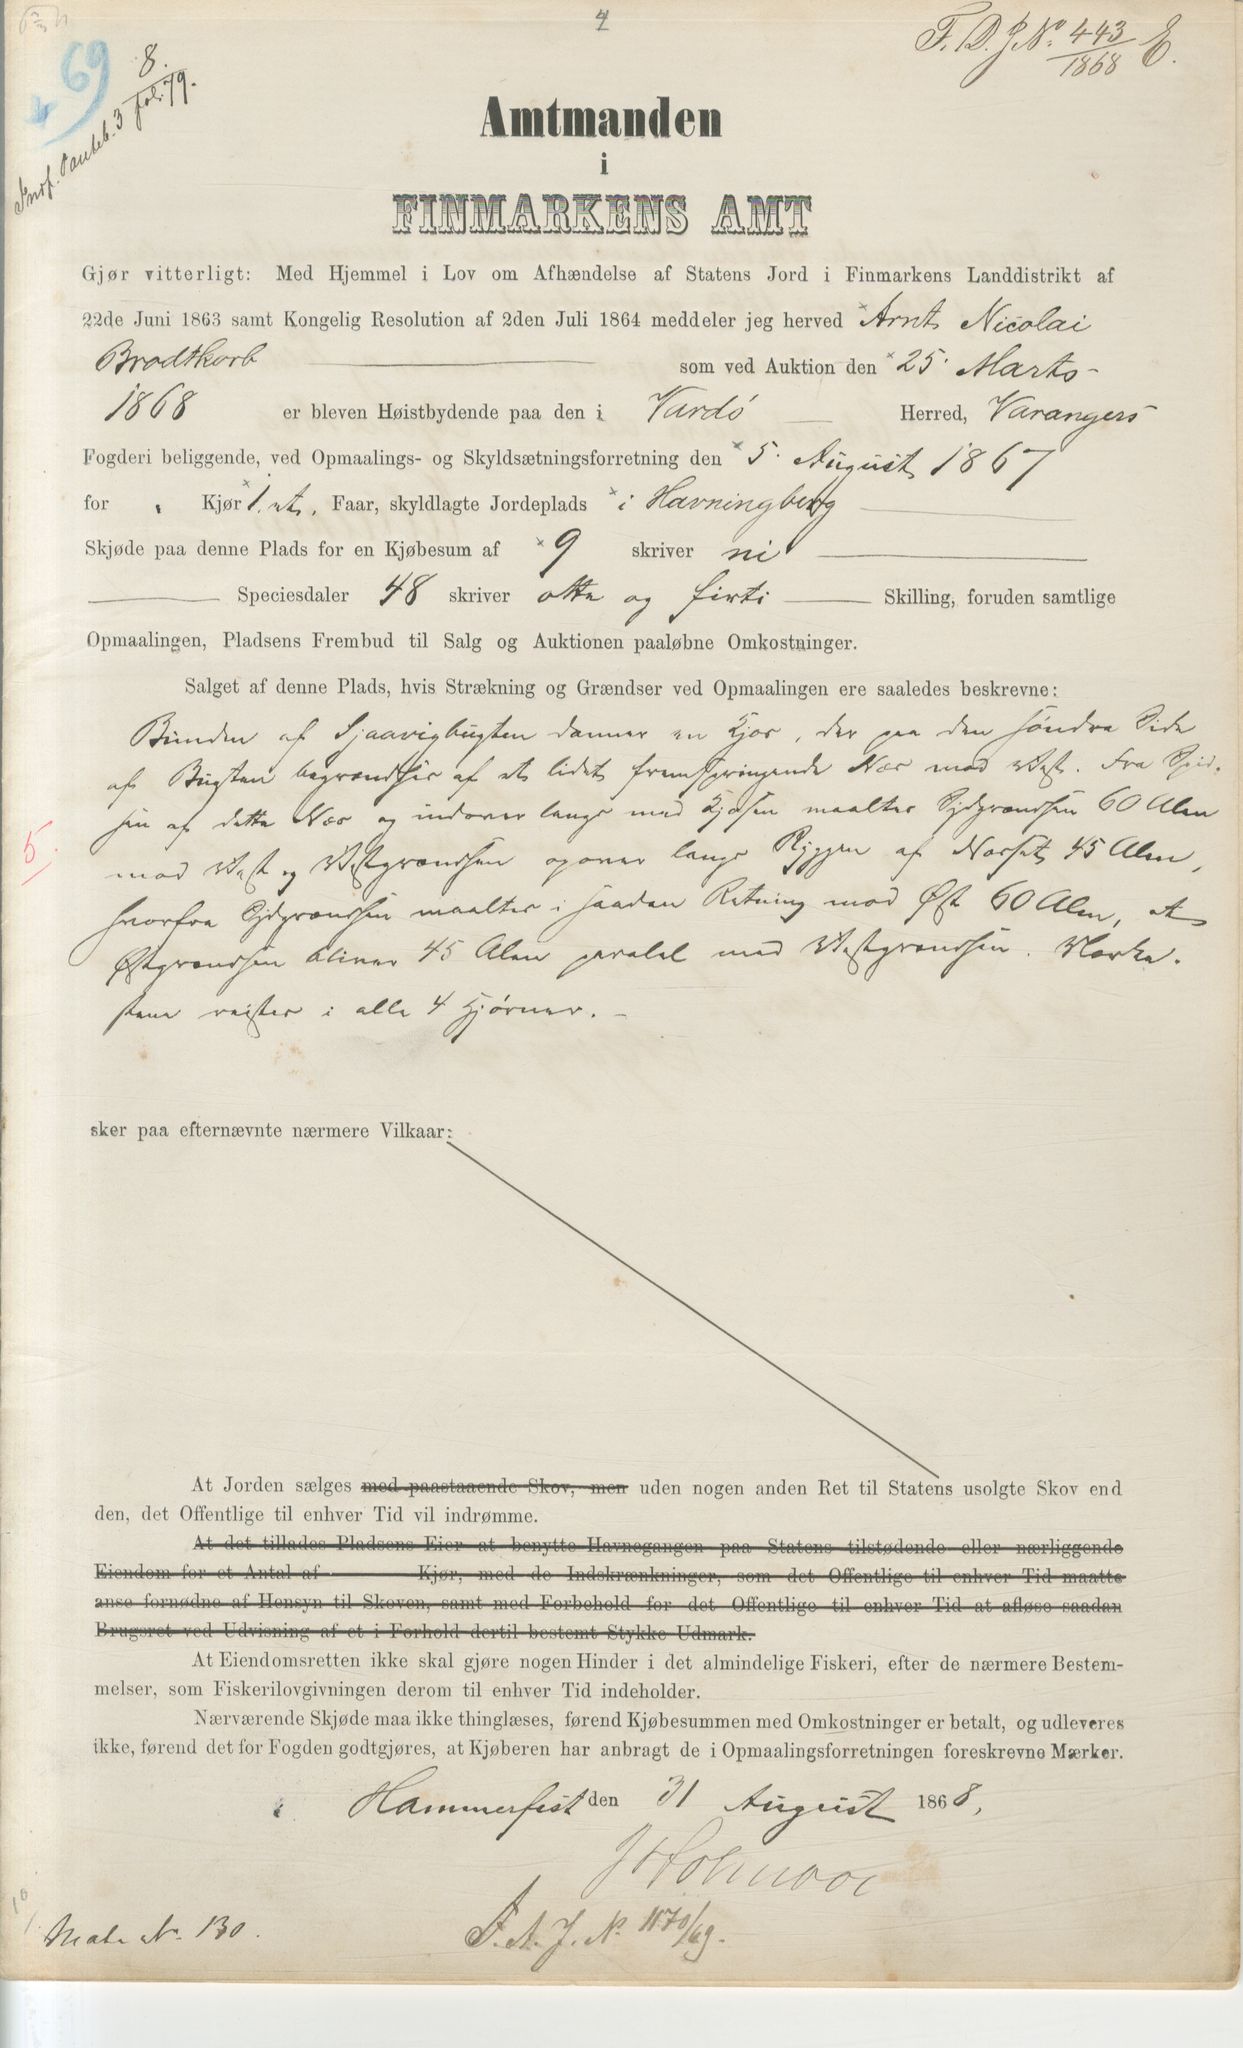 4
F. D. J. No. 443/1868 E.
69
8.
Panteb. 3 fol. 79.
Amtmanden
i
FINMARKENS AMT
Gjør vitterligt: Med Hjemmel i Lov om Afhændelse af Statens Jord i Finmarkens Landdistrikt af
22de Juni 1863 samt Kongelig Resolution af 2den Juli 1864 meddeler jeg herved Arnt Nicolai
Brodtkorb som ved Auktion den 25. Marts
1868 er bleven Høistbydende paa den i Vardö Herred, Varangers
Fogderi beliggende, ved Opmaalings- og Skyldsætningsforretning den 5. August 1867
for Kjør 1, et, Faar, skyldlagte Jordeplads i Havningberg
Skjøde paa denne Plads for en Kjøbesum af 9 skriver ni
Speciesdaler 48 skriver otte og firti Skilling, foruden samtlige
Opmaalingen, Pladsens Frembud til Salg og Auktionen paaløbne Omkostninger.
Salget af denne Plads, hvis Strækning og Grændser ved Opmaalingen ere saaledes beskrevne:
Bunden af Sjaavigbugten danner en Kjos, der paa den söndre Side
af Bugten begrændses af et lidet fremspringende Næs mod Vest. Fra Spid-
sen af dette Næs og indover langs med Kjosen maaltes Sydgrændsen 60 Alen
mod Vest og Vestgrændsen opover langs Ryggen af Næsset 45 Alen,
hvorfra Sydgrændsen maaltes i saadan Retning mod Øst 60 Alen, at
Østgrændsen bliver 45 Alen paralel med Vestgrændsen. Mærke-
stene reistes i alle 4 Hjörner. -
5.
sker paa efternævnte nærmere Vilkaar:
At Jorden sælges med paastaaende Skov, men uden nogen anden Ret til Statens usolgte Skov end
den, det Offentlige til enhver Tid vil indrømme.
At det tillades Pladsens Eier at benytte Havnegangen paa Statens tilstødende eller nærliggende
Eiendom for et Antal af Kjør, med de Indskrænkninger, som det Offentlige til enhver Tid maatte
anse fornødne af Hensyn til Skoven, samt med Forbehold for det Offentlige til enhver Tid at afløse saadan
Brugsret ved Udvisning af et i Forhold dertil bestemt Stykke Udmark.
At Eiendomsretten ikke skal gjøre nogen Hinder i det almindelige Fiskeri, efter de nærmere Bestem-
melser, som Fiskerilovgivningen derom til enhver Tid indeholder.
Nærværende Skjøde maa ikke thinglæses, førend Kjøbesummen med Omkostninger er betalt, og udleveres
ikke, førend det for Fogden godtgjøres, at Kjøberen har anbragt de i Opmaalingsforretningen foreskrevne Mærker.
Hammerfest den 31 August 1868,
J Holmboe
F. A. J. No. 1170/69.
Matr No. 130.